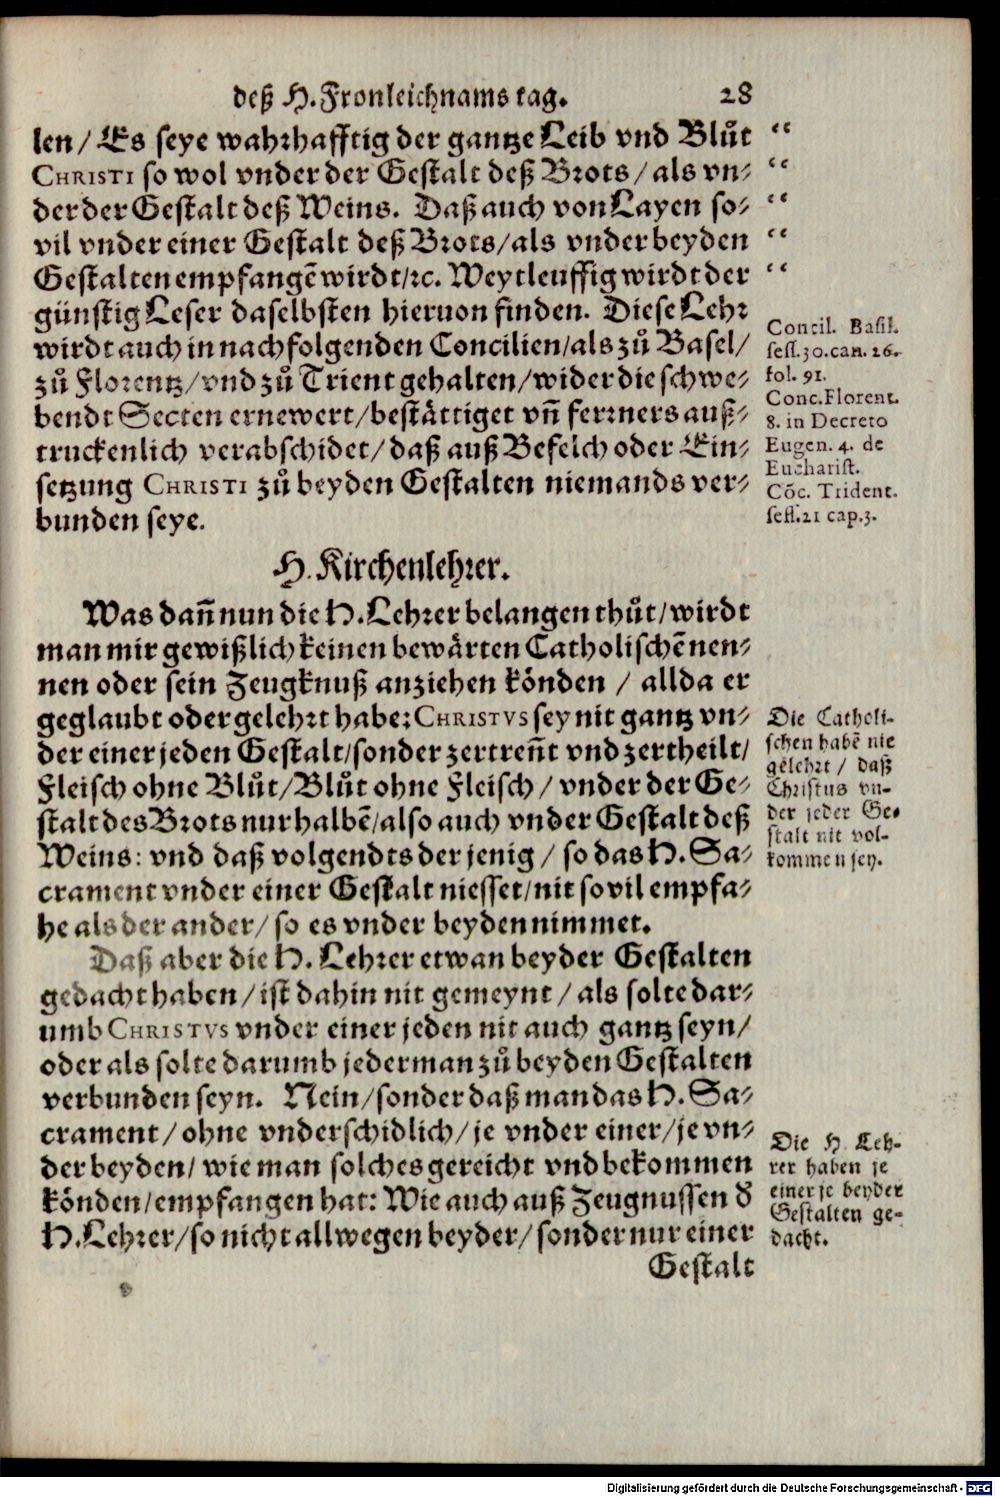 deß H. Fronleichnams tag. 28
len/ Es seye wahrhafftig der gantze Leib vnd Blůt “
CHRISTI so wol vnder der Gestalt deß Brots/ als vn- “
der der Gestalt deß Weins. Daß auch von Layen so- “
vil vnder einer Gestalt deß Brots/als vnder beyden “
Gestalten empfangẽ wirdt/ꝛc. Weytleuffig wirdt der “
günstig Leser daselbsten hieruon finden. Diese Lehr
wirdt auch in nachfolgenden Concilien/als zů Basel/
zů Florentz/vnd zů Trient gehalten/wider die schwe-
bendt Secten ernewert/bestättiget vñ ferrners auß-
truckenlich verabschidet/ daß auß Befelch oder Ein-
setzung CHRISTI zů beyden Gestalten niemands ver-
bunden seye.
Concil. Basil.
sess.30.can.16.
fol. 91.
Conc.Florent.
8. in Decreto
Eugen. 4. de
Eucharist.
Cõc. Trident.
sess.21 cap.3.
H. Kirchenlehrer.
Was dañ nun die H. Lehrer belangen thůt/wirdt
man mir gewißlich keinen bewärten Catholischẽ nen-
nen oder sein Zeugknuß anziehen könden / allda er
geglaubt oder gelehrt habe: CHRISTVS sey nit gantz vn-
der einer jeden Gestalt/sonder zertreñt vnd zertheilt/
Fleisch ohne Blůt/Blůt ohne Fleisch/ vnder der Ge-
stalt des Brots nur halbẽ/also auch vnder Gestalt deß
Weins: vnd daß volgendts der jenig / so das H. Sa-
crament vnder einer Gestalt niesset/nit so vil empfa-
he als der ander/ so es vnder beyden nimmet.
Die Catholi-
schen habẽ nie
gelehrt/ daß
Christus vn-
der jeder Ge-
stalt nit vol-
kommen sey.
Daß aber die H. Lehrer etwan beyder Gestalten
gedacht haben/ist dahin nit gemeynt/ als solte dar-
umb CHRISTVS vnder einer jeden nit auch gantz seyn/
oder als solte darumb jederman zů beyden Gestalten
verbunden seyn. Nein/sonder daß man das H. Sa-
crament/ ohne vnderschidlich/je vnder einer/je vn-
der beyden/ wie man solches gereicht vnd bekommen
könden/empfangen hat: Wie auch auß Zeugnussen ď
H. Lehrer/so nicht allwegen beyder/sonder nur einer
Gestalt
Die H. Leh-
rer haben je
einer je beyder
Gestalten ge-
dacht.
Digitalisierung gefördert durch die Deutsche Forschungsgemeinschaft - DFG